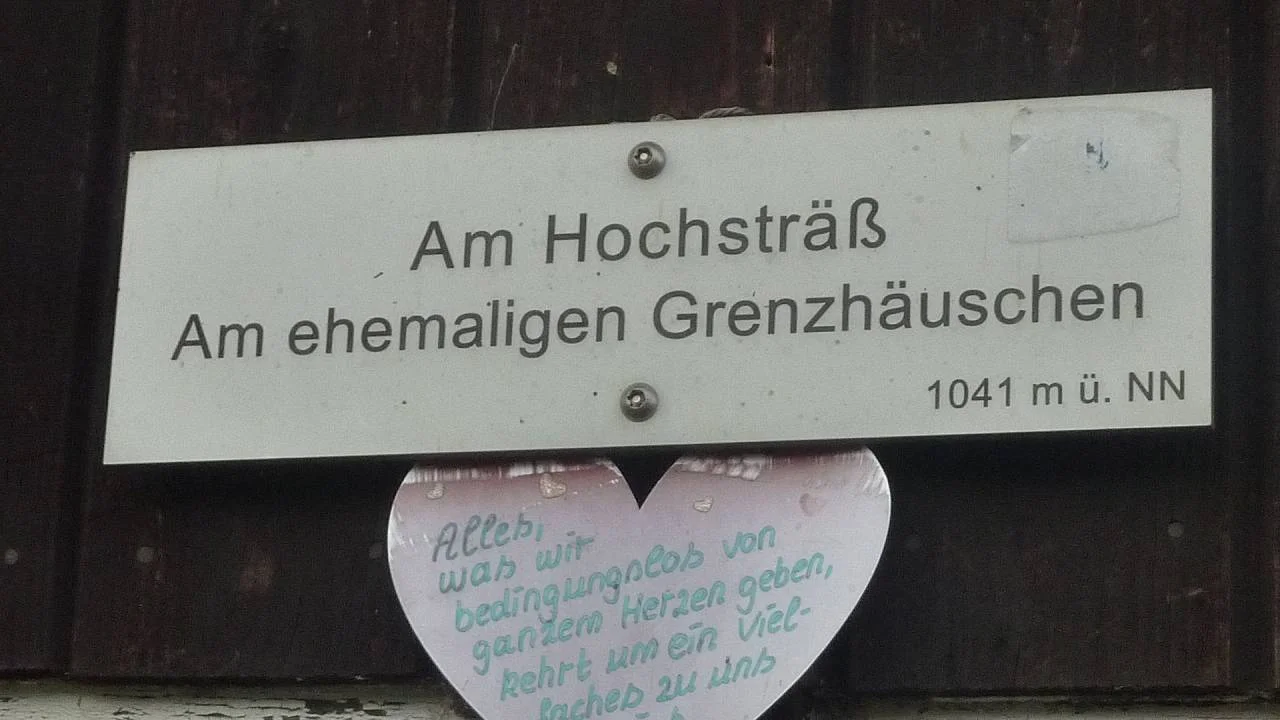 Am Hochsträß
Am ehemaligen Grenzhäuschen
1041 m ü. NN
Alles,
was wir
bedingungslos von
ganzem Herzen geben,
kehrt um ein Viel-
faches zu uns